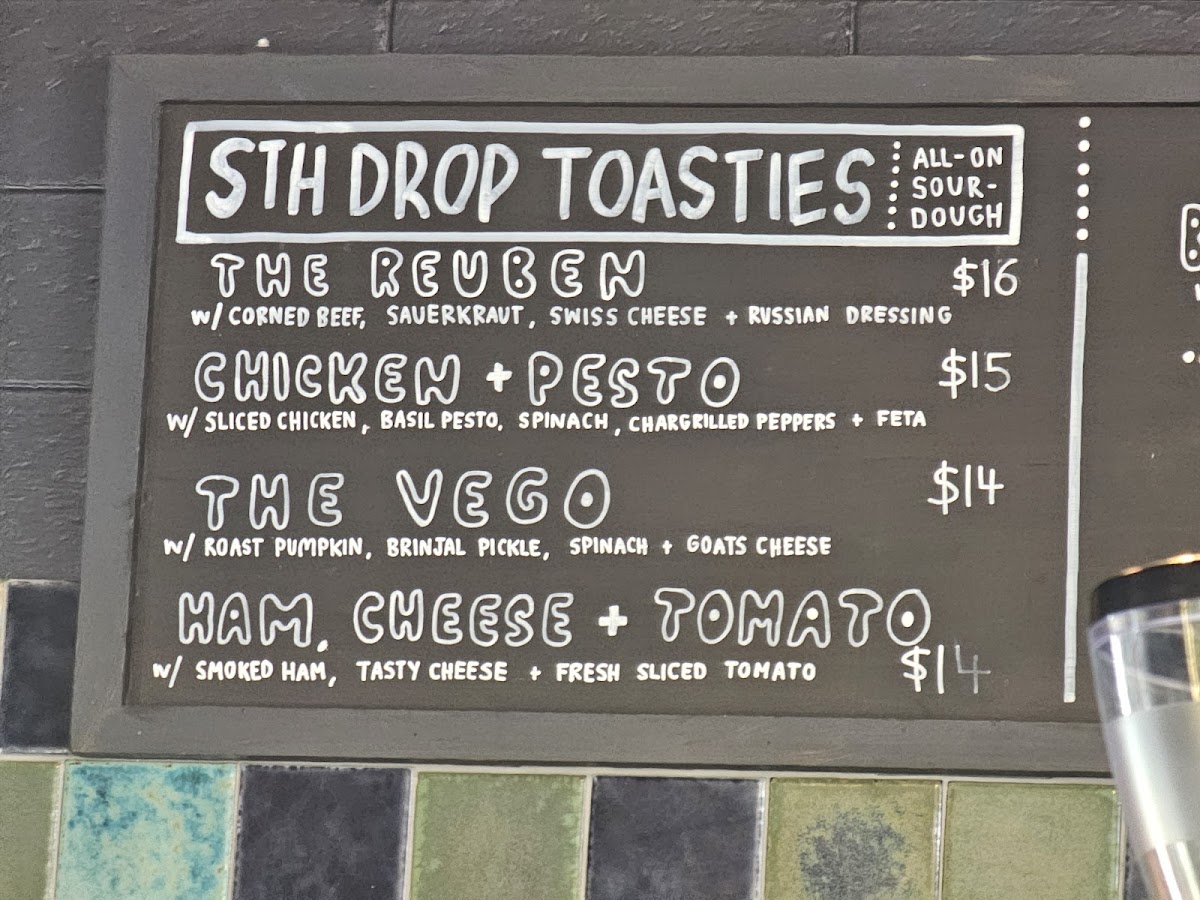 STH DROP TOASTIES
ALL-ON
SOUR-
DOUGH
THE REUBEN $16
W/ CORNED BEEF, SAUERKRAUT, SWISS CHEESE + RUSSIAN DRESSING
CHICKEN + PESTO $15
W/ SLICED CHICKEN, BASIL PESTO, SPINACH, CHARGRILLED PEPPERS + FETA
THE VEGO $14
W/ ROAST PUMPKIN, BRINJAL PICKLE, SPINACH + GOATS CHEESE
HAM, CHEESE + TOMATO
W/ SMOKED HAM, TASTY CHEESE + FRESH SLICED TOMATO $14